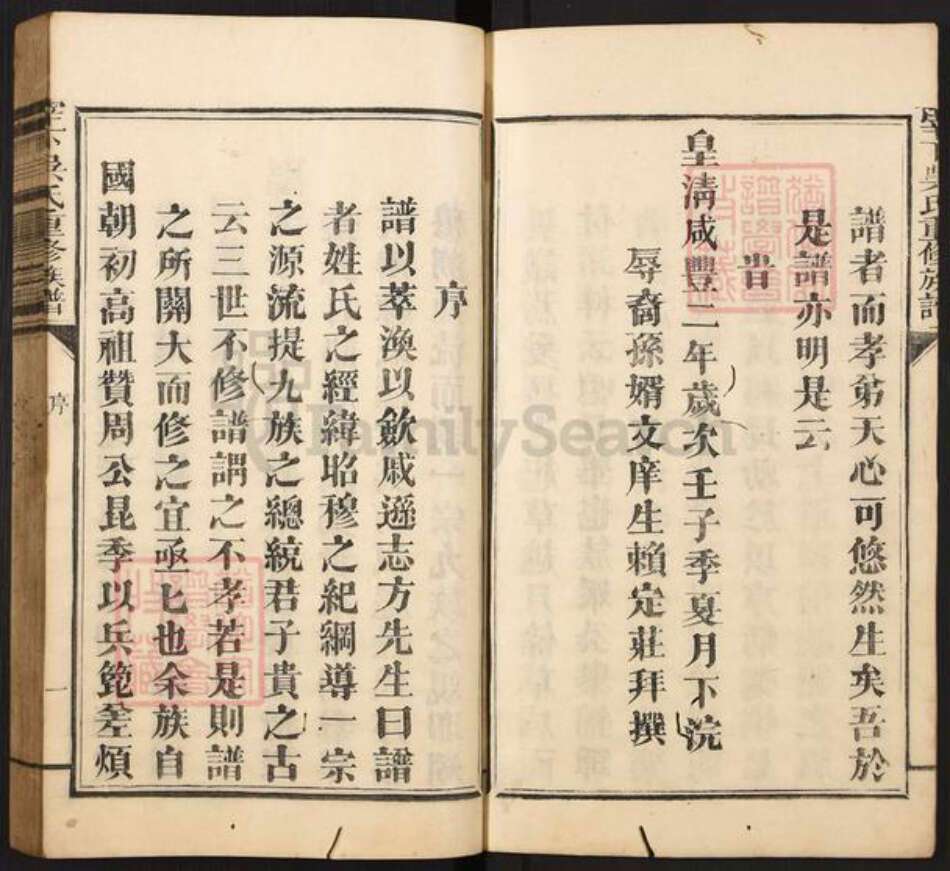 譜者而孝弟天心可悠然生矣吾於
是譜亦明是云
旹
皇清咸豐二年歲次壬子季夏月下浣
辱裔孫婿文庠生賴定莊拜撰
吳氏重修族譜
序
譜以萃渙以歛戚遜志方先生曰譜
者姓氏之經緯昭穆之紀綱導一宗
之源流提九族之總統君子貴之古
云三世不修譜謂之不孝若是則譜
之所關大而修之宜亟匕也余族自
國朝初高祖贊周公昆季以兵範差煩
吳氏重修族譜
序
一
FamilySearch